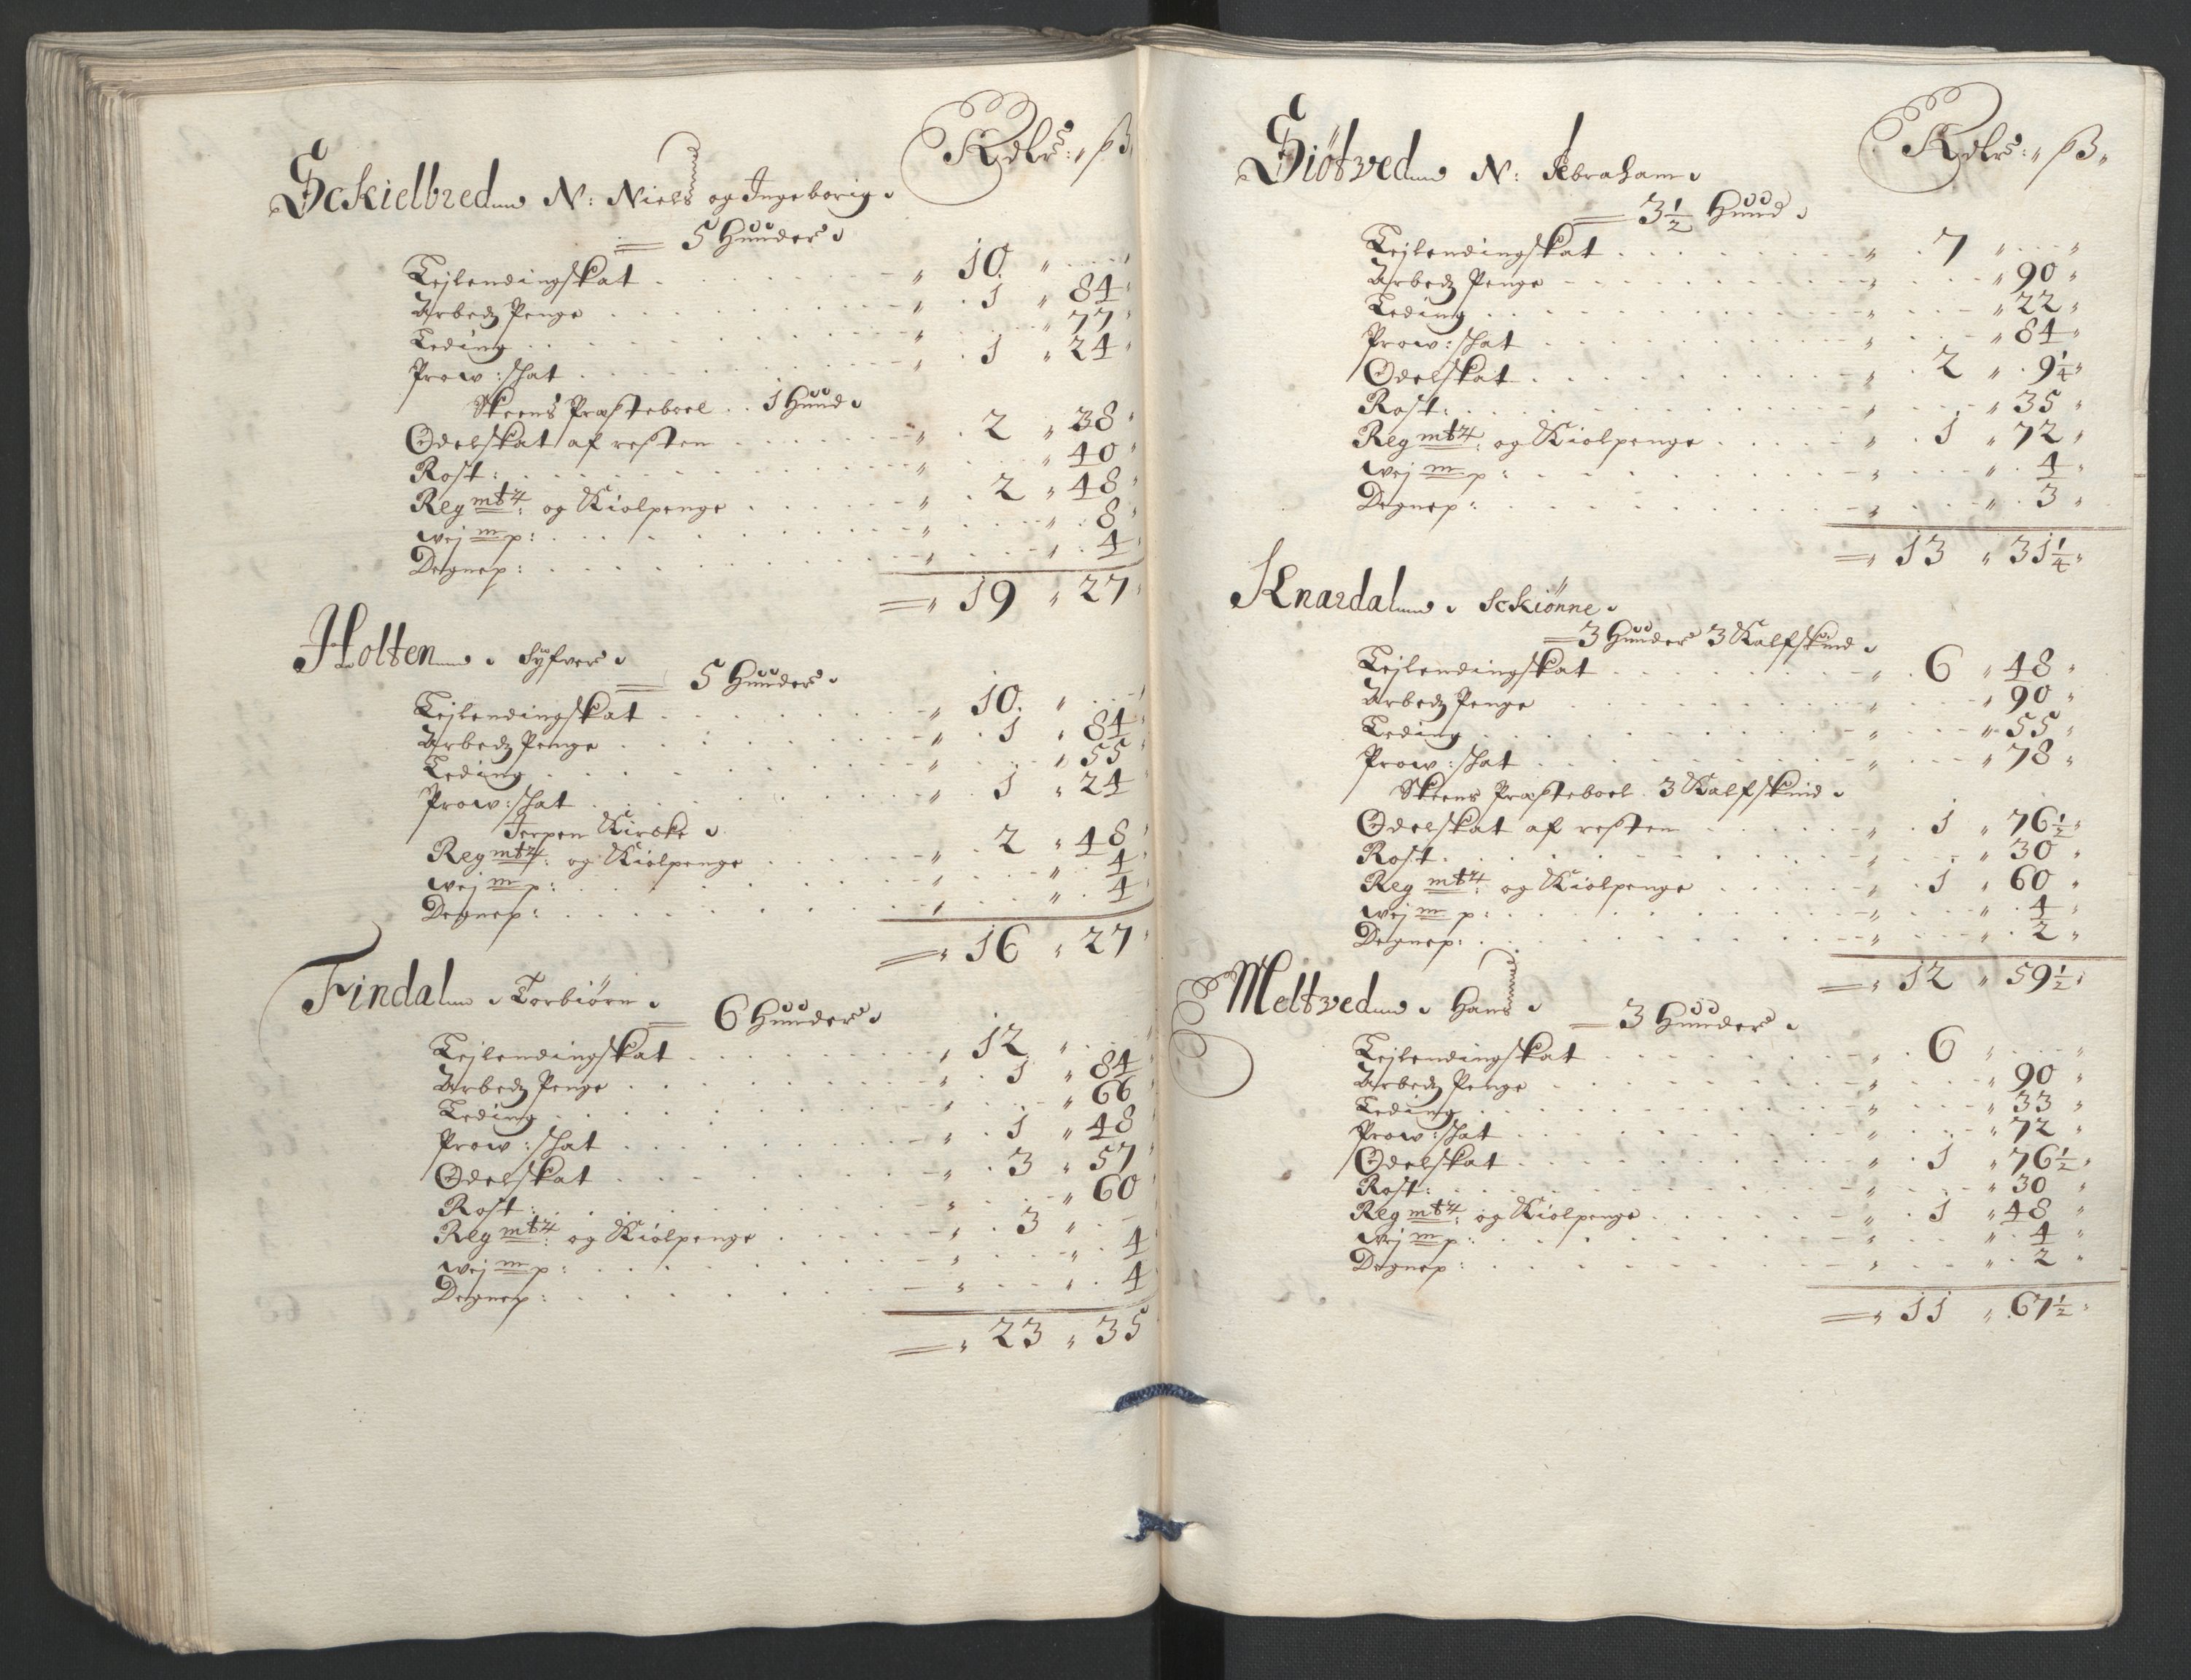 Rdlr: ß
Sckielbred N: Niels og Ingeborig
= 5 Huuder
Lejlendingskat 10
Arbedz Penge 1 84
Leding 77
Prow: skat 1 24
Skeens Præsteboel 1 Huud
Odelskat af resten 2 38
Rost: 40
Reg mtz: og Kiolpenge 2 48
wej m p: 8
Degnep: 4
= 19 27
Holten Syfver
= 5 Huuder
Lejlendingskat 10
Arbedz Penge 1 84
Leding 55
Prow: skat 1 24
Jerpen Kircke
Reg mtz: og Kiolpenge 2 48
wej m p: 4
Degnep: 4
= 16 27
Findal Torbiørn
= 6 Huuder
Lejlendingskat 12
Arbedz Penge 1 84
Leding 66
Prow: skat 1 48
Odelskat 3 57
Rost: 60
Reg mtz: og Kiolpenge 3
wej m p: 4
Degnep: 4
= 23 35
Rdlr: ß
Siøtved N: Abraham
= 3 1/2 Huud
Lejlendingskat 7
Arbedz Penge 90
Leding 22
Prow: skat 84
Odelskat 2 9 1/4
Rost: 35
Reg mtz: og Kiolpenge 1 72
wej m p: 4
Degnep: 3
= 13 31 1/4
Knardal Sckiønne
= 3 Huuder 3 Kalfskind
Lejlendingskat 6 48
Arbedz Penge 90
Leding 55
Prow: skat 78
Skeens Præsteboel 3 Kalfskind
Odelskat af resten 1 76 1/2
Rost. 30
Reg mtz: og Kiolpenge 1 60
wej m p: 4
Degnep: 2
= 12 59 1/2
Meltved Hans
= 3 Huuder
Lejlendingskat 6
Arbedz Penge 90
Leding 33
Prow: skat 72
Odelskat 1 76 1/2
Rost: 30
Reg mtz: og Kiolpenge 1 48
wej m p: 4
Degnep: 2
= 11 67 1/2